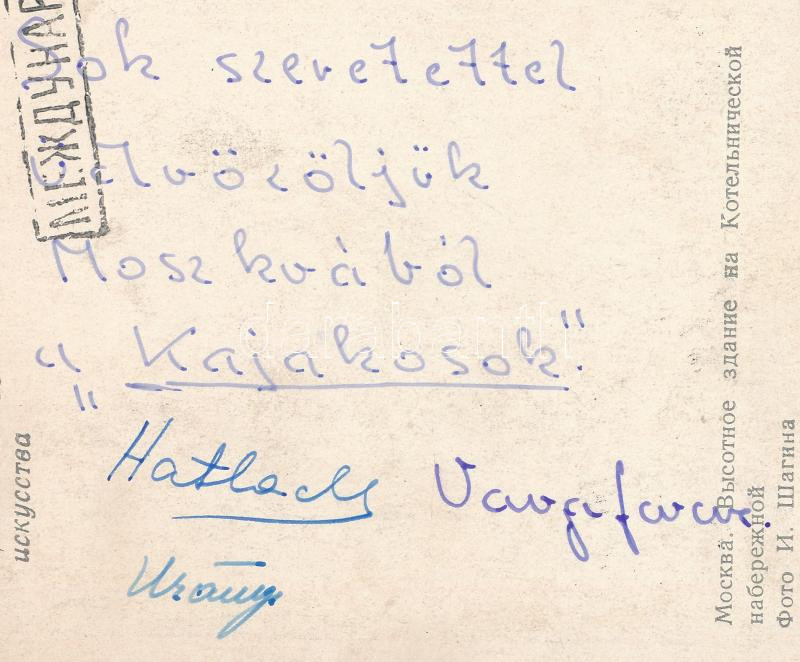 Sok szeretettel
üdvözöljük
Moszkvából
a „Kajakosok".
Hatlaczky
Varga Ferenc.
Urányi
МЕЖДУНАР
искусства
Москва. Высотное здание на Котельнической
набережной
Фото И. Шагина
darabanth